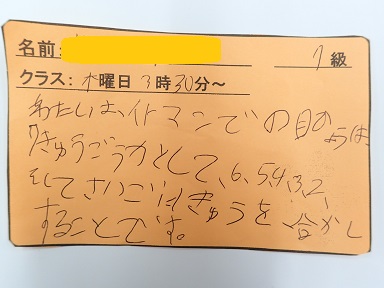 名前:
7級
クラス: 水曜日 3時30分~
わたしは、イトマンでの目ひょうは、
7きゅうごうかくして、6、5、4、3、2、
そしてさいごに1きゅうを合かく
することです。